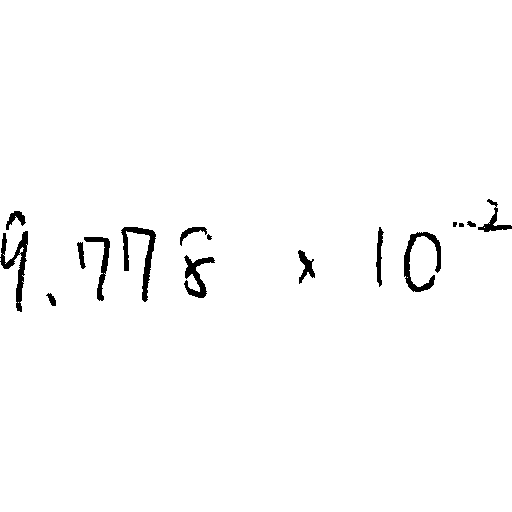 9.778 × 10⁻²